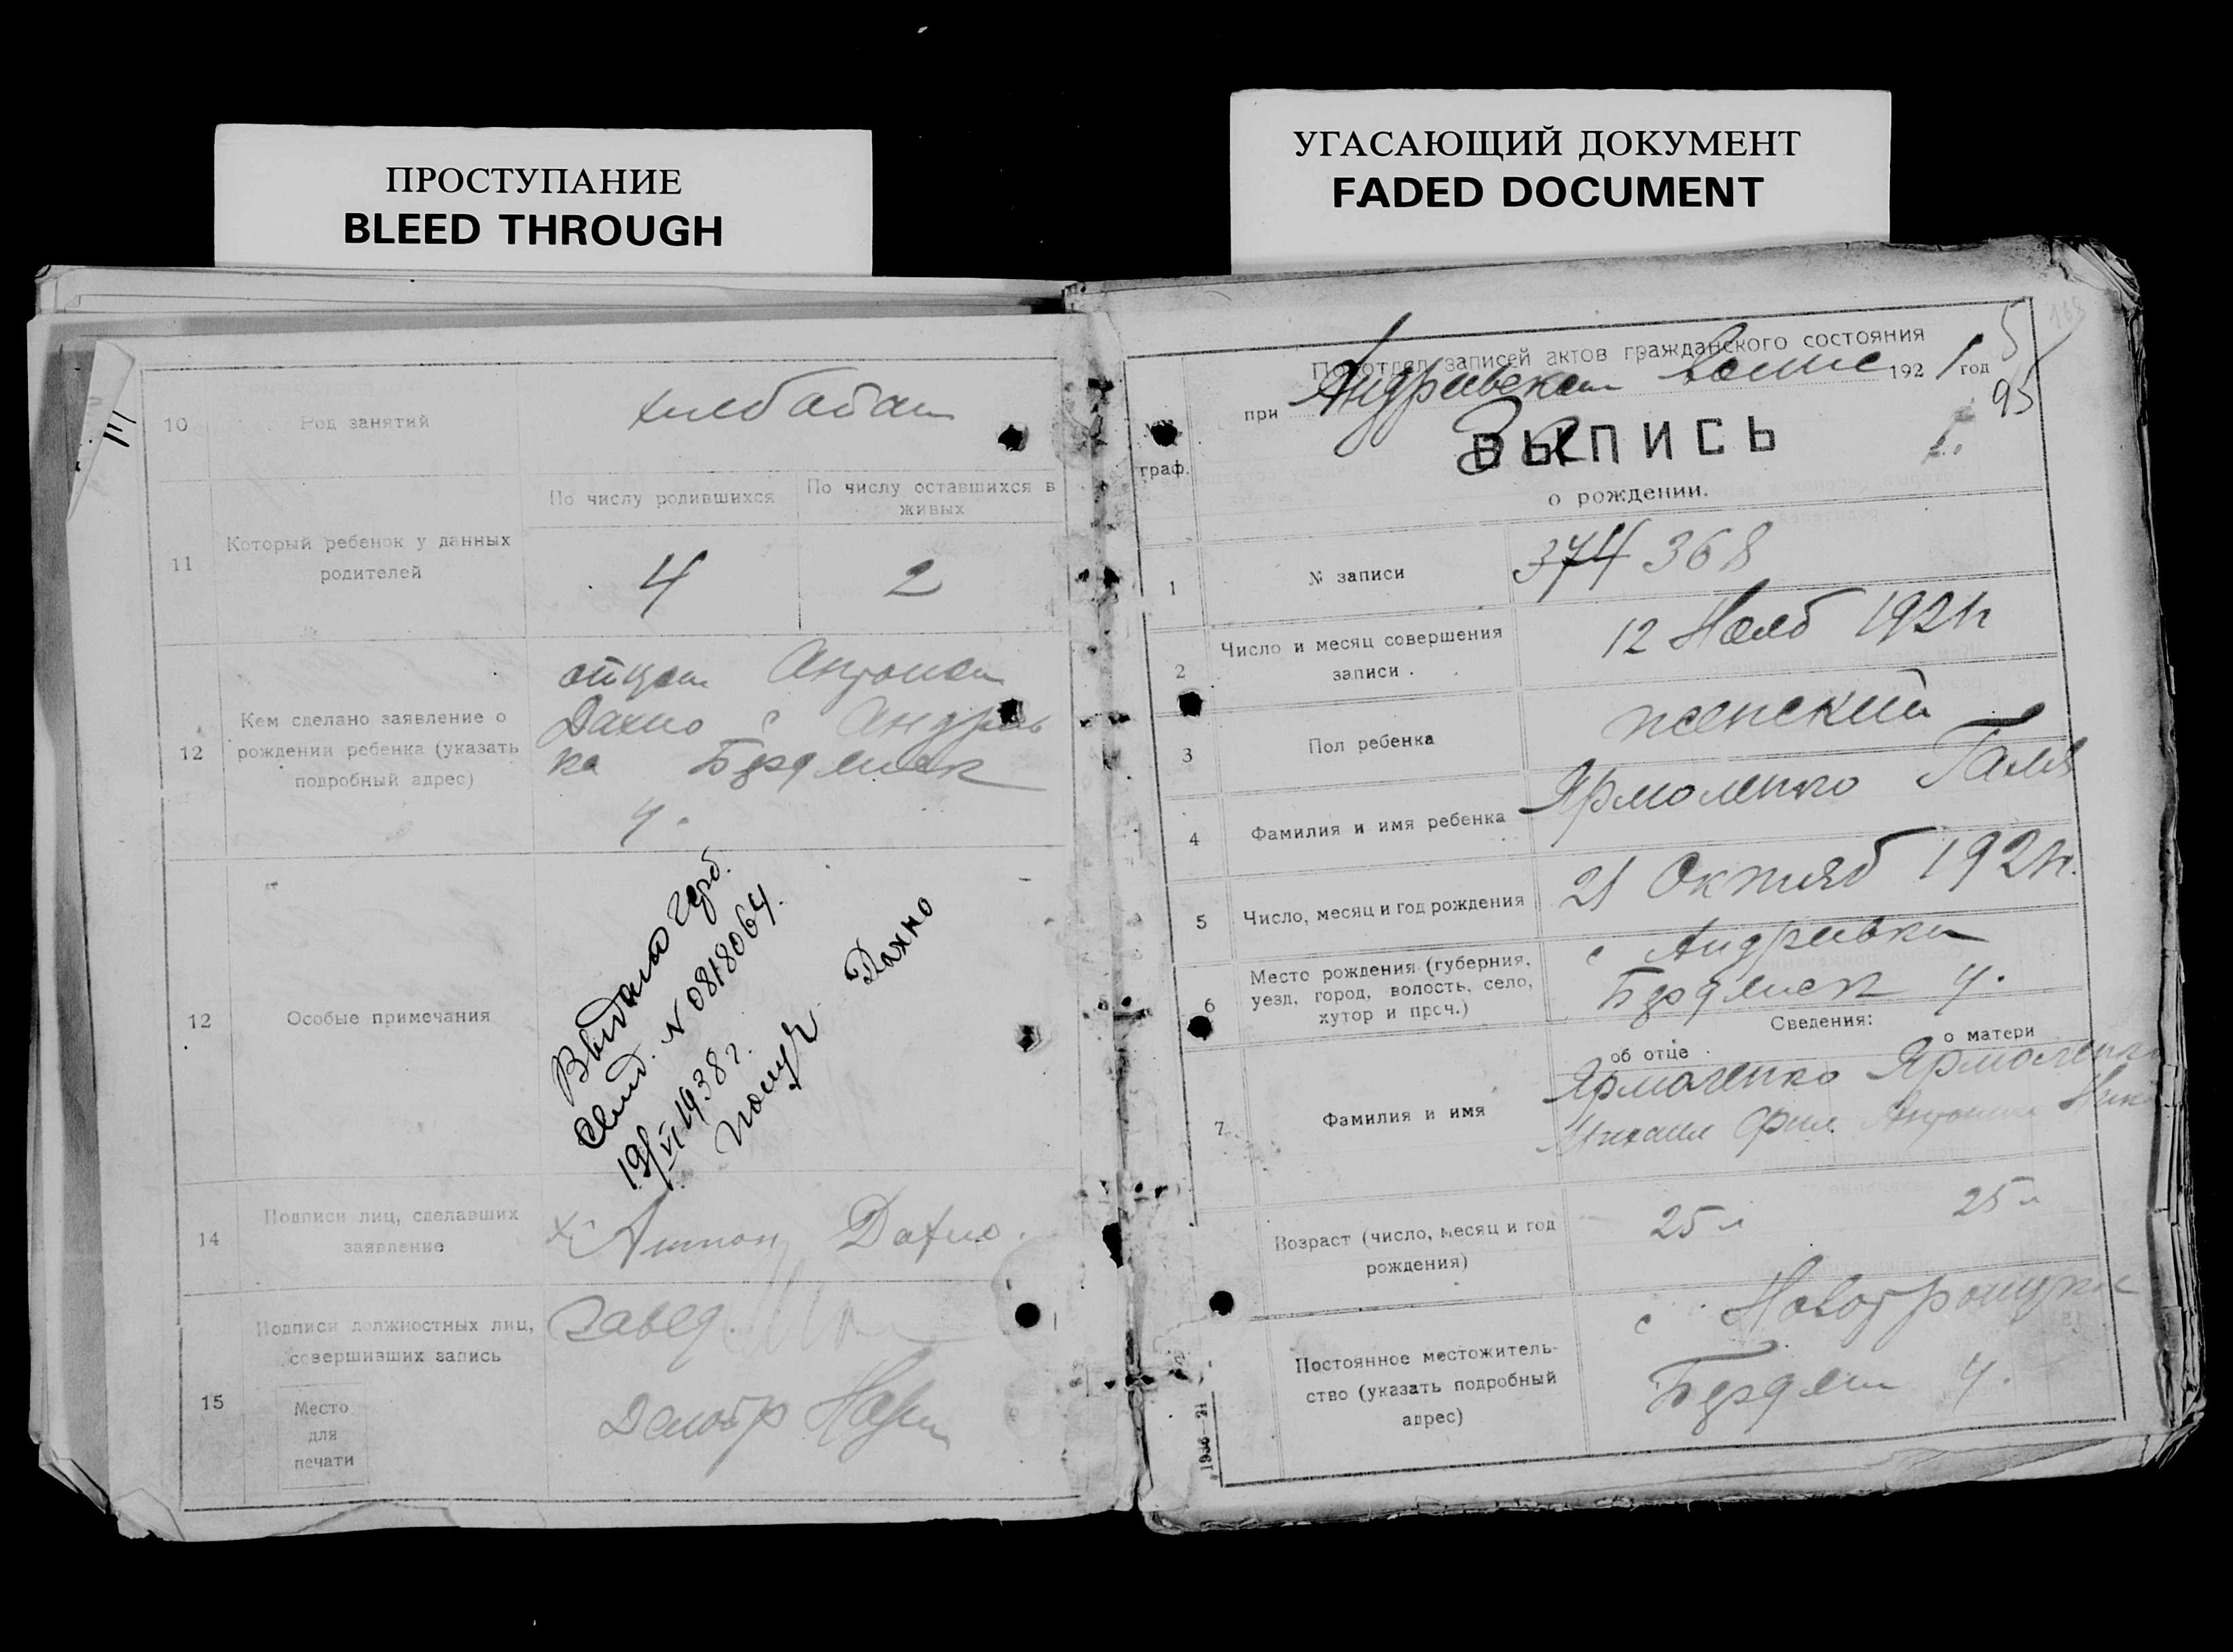 ПРОСТУПАНИЕ
BLEED THROUGH
10
Род занятий
хлебопаш
11
Который ребенок у данных
родителей
По числу родившихся
По числу оставшихся в
живых
4
2
12
Кем сделано заявление о
рождении ребенка (указать
подробный адрес)
отцом Антоном
Дахно с Андреев
ка Бердянск
у.
12
Особые примечания
Выдано
Свид. N 0818064.
19/VI 1938 г.
Дахно
14
Подписи лиц, сделавших
заявление
Антон Дахно.
15
Подписи должностных лиц,
совершивших запись
Место
для
печати
Завед.
УГАСАЮЩИЙ ДОКУМЕНТ
FADED DOCUMENT
Подотдел записей актов гражданского состояния
при Андреевском Волис 1921 год
95
ВЫПИСЬ
о рождении.
граф.
1
№ записи
374 368
2
Число и месяц совершения
записи .
12 Нояб 1921г
3
Пол ребенка
женский
4
Фамилия и имя ребенка
Ярмоленко Галя
5
Число, месяц и год рождения
21 Октяб 1921г.
6
Место рождения (губерния,
уезд, город, волость, село,
хутор и проч.)
с Андреевка
Бердянск у.
Сведения:
об отце
о матери
7
Фамилия и имя
Ярмоленко Ярмоленко
Михаил Фил
Возраст (число, месяц и год
рождения)
25 л 25 л
Постоянное местожитель-
ство (указать подробный
адрес)
с Новотроицка
Бердян у.